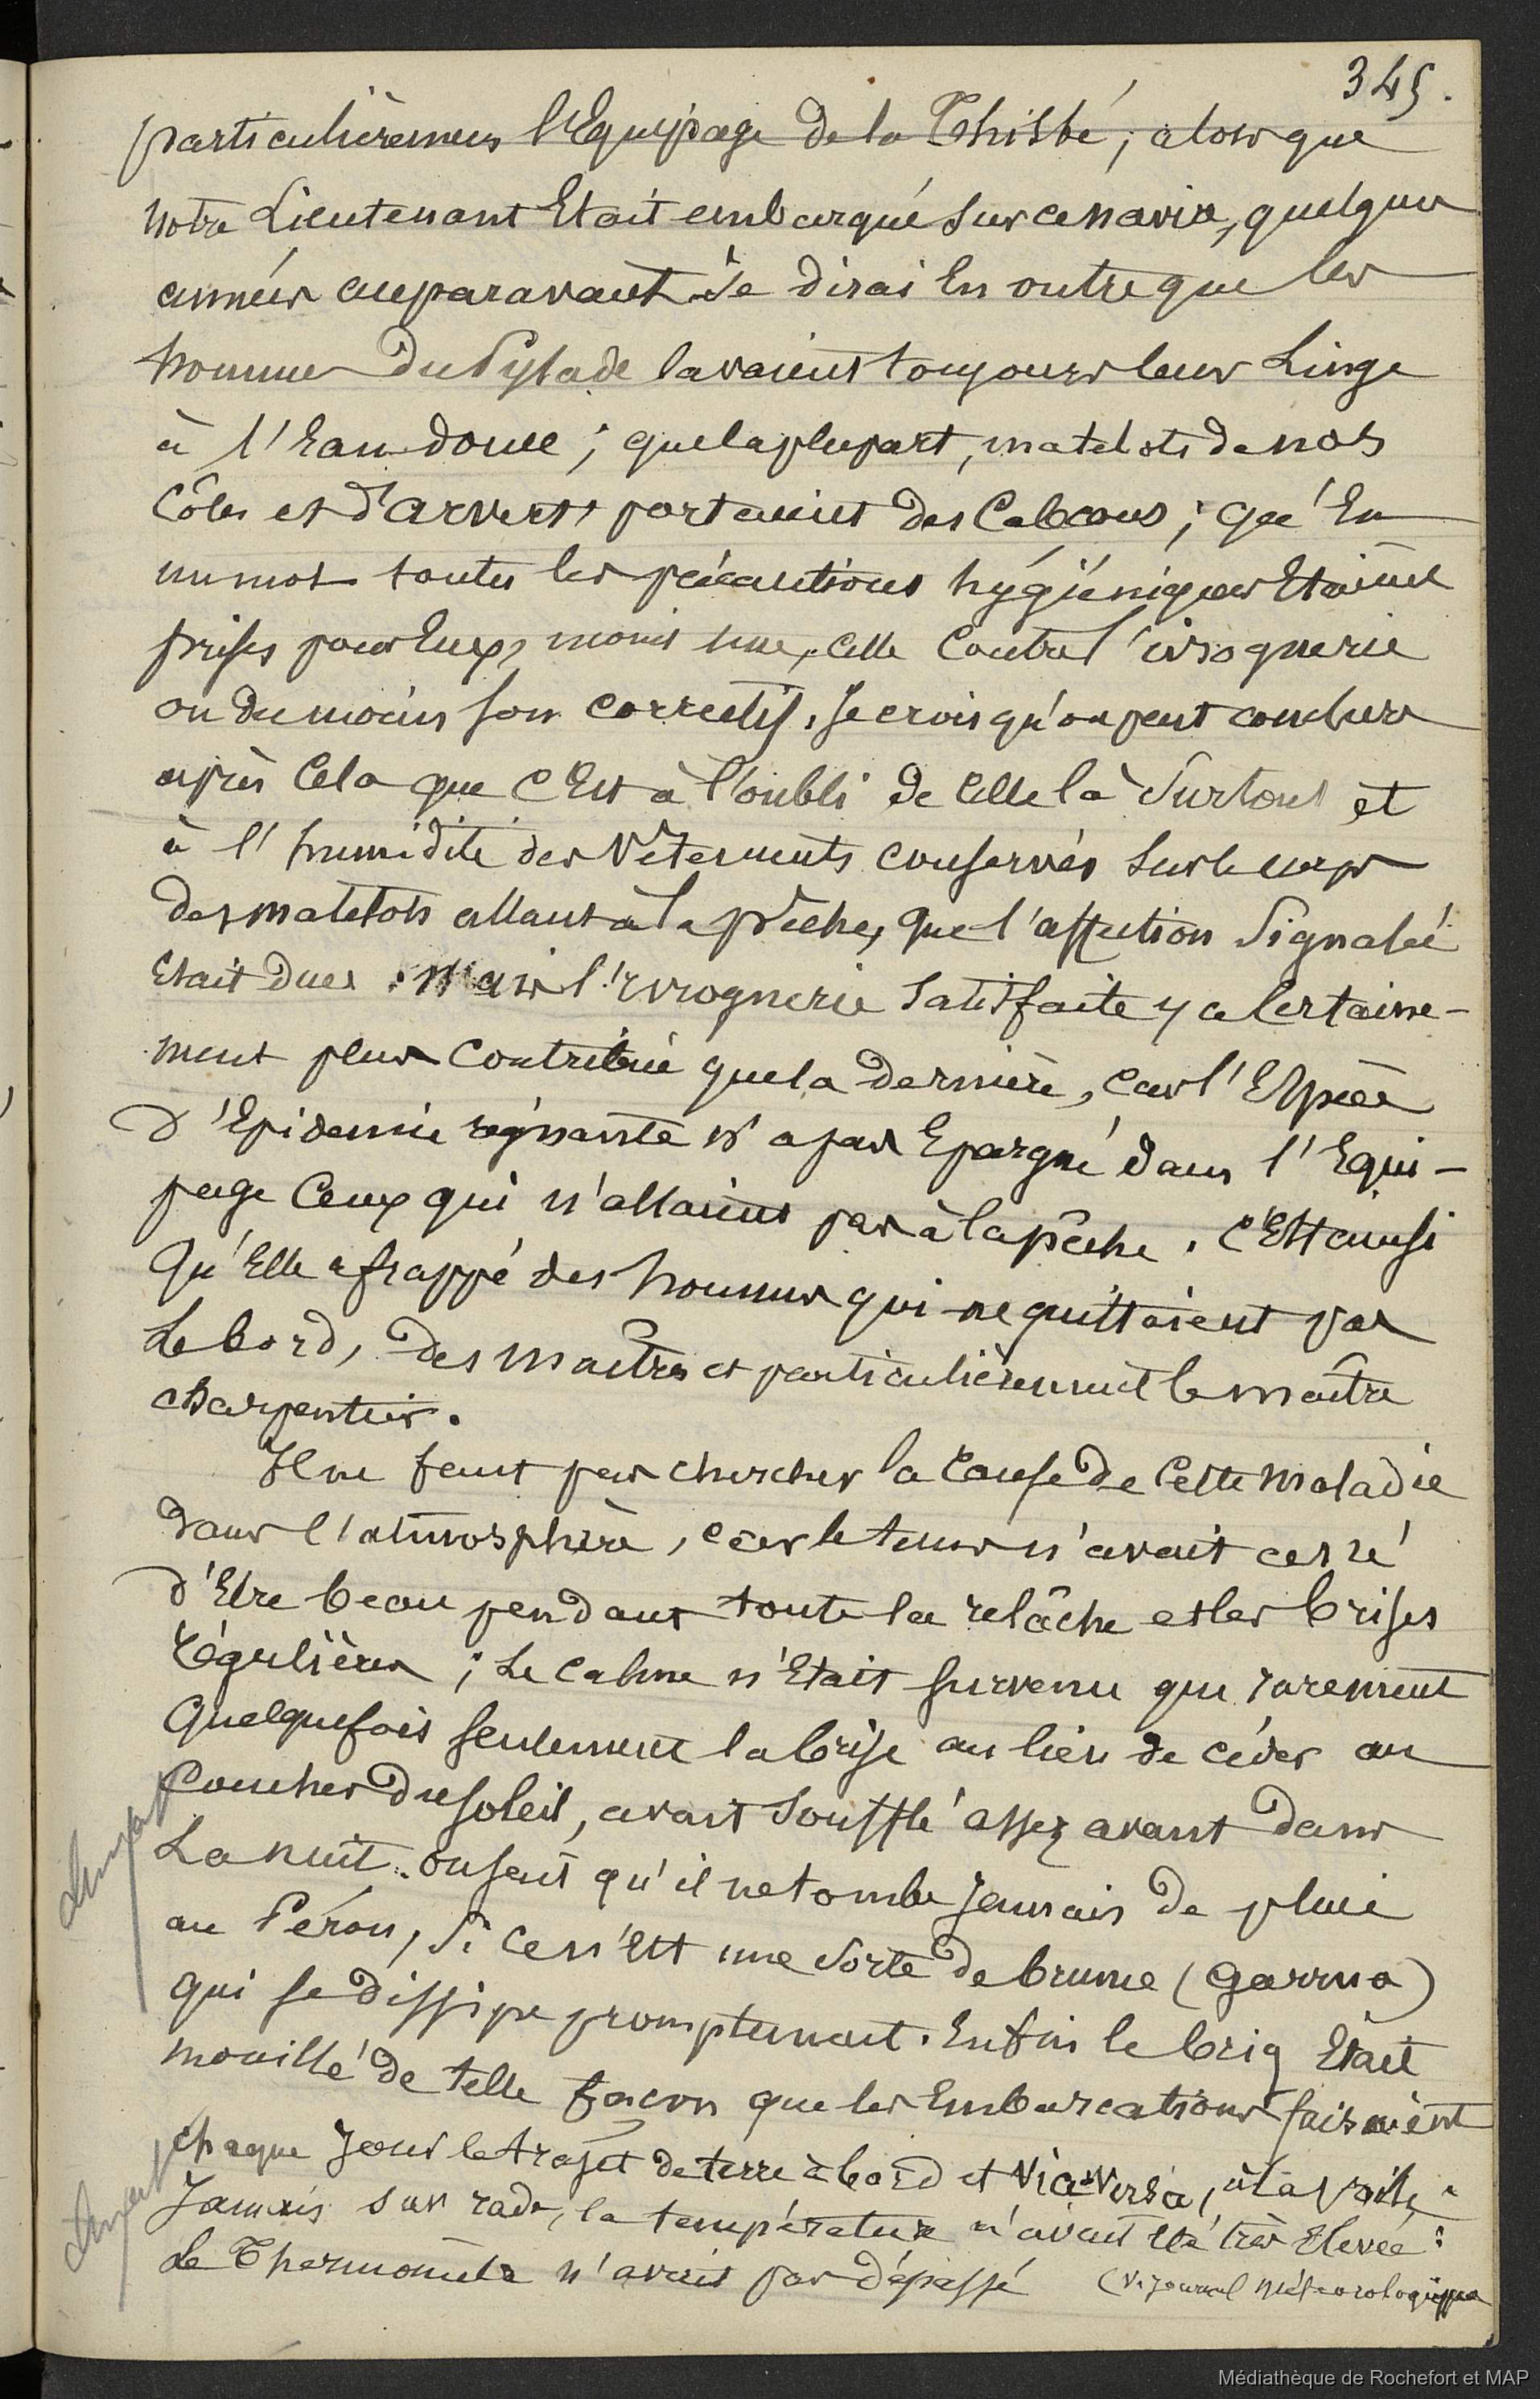 345.
particulièrement l'Equipage de la Thisbé, alors que
notre Lieutenant Etait embarqué sur ce navire, quelques
années auparavant. Je dirai En outre que les
hommes du Pylade lavaient toujours leur Linge
à l'Eau douce ; que la plupart, matelots de nos
Côtes et d'Arvert, portaient des Caleçons ; qu'En
un mot toutes les précautions hygiéniques Etaient
prises pour Eux, moins une, celle Contre l'ivrognerie
ou du moins son correctif. Je crois qu'on peut conclure
après Cela que C'Est à l'oubli de Celle là Surtout et
à l'humidité des Vêtements conservés Sur le corps
des matelots allant à la pêche, que l'affection Signalée
Etait due. Mais l'Ivrognerie Satisfaite y a Certaine-
ment plus Contribué que la dernière, Car l'Espèce
d'Epidémie régnante n'a pas Epargné dans l'Equi-
page Ceux qui n'allaient pas à la pêche. C'Est ainsi
Qu'Elle a frappé des hommes qui ne quittaient pas
Le bord, des maîtres et particulièrement le maître
charpentier.
Il ne faut pas chercher la Cause de Cette maladie
dans l'atmosphère, car le tems n'avait cessé
d'Etre beau pendant toute la relâche et les brises
régulières ; Le Calme n'Etait survenu que rarement
Quelquefois seulement la brise au lieu de céder au
Coucher du soleil, avait Soufflé assez avant dans
La nuit. On sait qu'il ne tombe Jamais de pluie
au Pérou, Si Ce n'Est une Sorte de brume (Garrua)
qui se dissipe promptement. Enfin le brig Etait
mouillé de telle façon que les Embarcations faisaient
chaque Jour le trajet de terre à bord et vice-versa, à la voile.
Jamais sur rade, la température n'avait Eté très Elevée :
Le Thermomètre n'avait pas dépassé (V. Journal Météorologique
Médiathèque de Rochefort et MAP